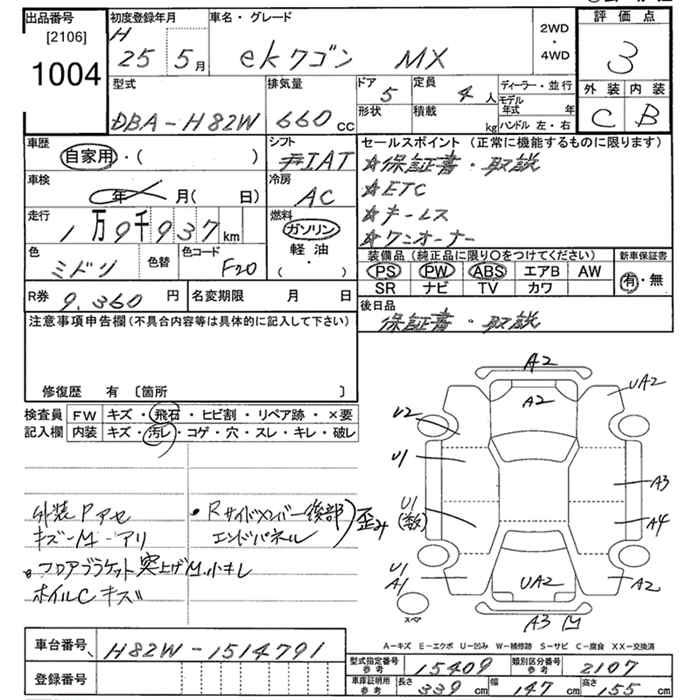 出品番号
[2106]
1004
初度登録年月
H
25 5月
車名・グレード
ekワゴン MX
2WD
・
4WD
評価点
3
型式
DBA-H82W
排気量
660cc
ドア
5
形状
定員
4人
積載
kg
ディーラー・並行
モデル年式 年
ハンドル 左・右
外装 内装
C B
車歴
自家用・( )
車検
年 月( 日)
走行
1万9千937km
色
ミドリ
色替
色コード
F20
シフト
IAT
冷房
AC
燃料
ガソリン
軽油
・( )
セールスポイント (正常に機能するものに限ります)
☆保証書・取説
☆ETC
☆キーレス
☆ワンオーナー
装備品 (純正品に限り〇をつけてください)
PS PW ABS エアB AW
SR ナビ TV カワ
新車保証書
有・無
R券 9,360円
名変期限 月 日
後日品
保証書・取説
注意事項申告欄 (不具合内容等は具体的に記入して下さい)
修復歴 有 〔箇所 〕
検査員
記入欄
FW キズ・飛石・ヒビ割・リペア跡・×要
内装 キズ・汚レ・コゲ・穴・スレ・キレ・破レ
外装Pアセ
キズ-M-アリ
・フロアブラケット突上げM.小キレ
ホイルCキズ
・Rサイドメンバー後部
エンドパネル
)歪み
A2
A2
UA2
U2
U1
U1
A3
A4
U1
A1
UA2
A2
A3
スペア
車台番号 H82W-1514791
登録番号
A-キズ E-エクボ U-凹み W-補修跡 S-サビ C-腐食 XX-交換済
型式指定番号 参考 15409
類別区分番号 参考 2107
車庫証明用 参考
長さ 339cm 幅 147cm 高さ 155cm